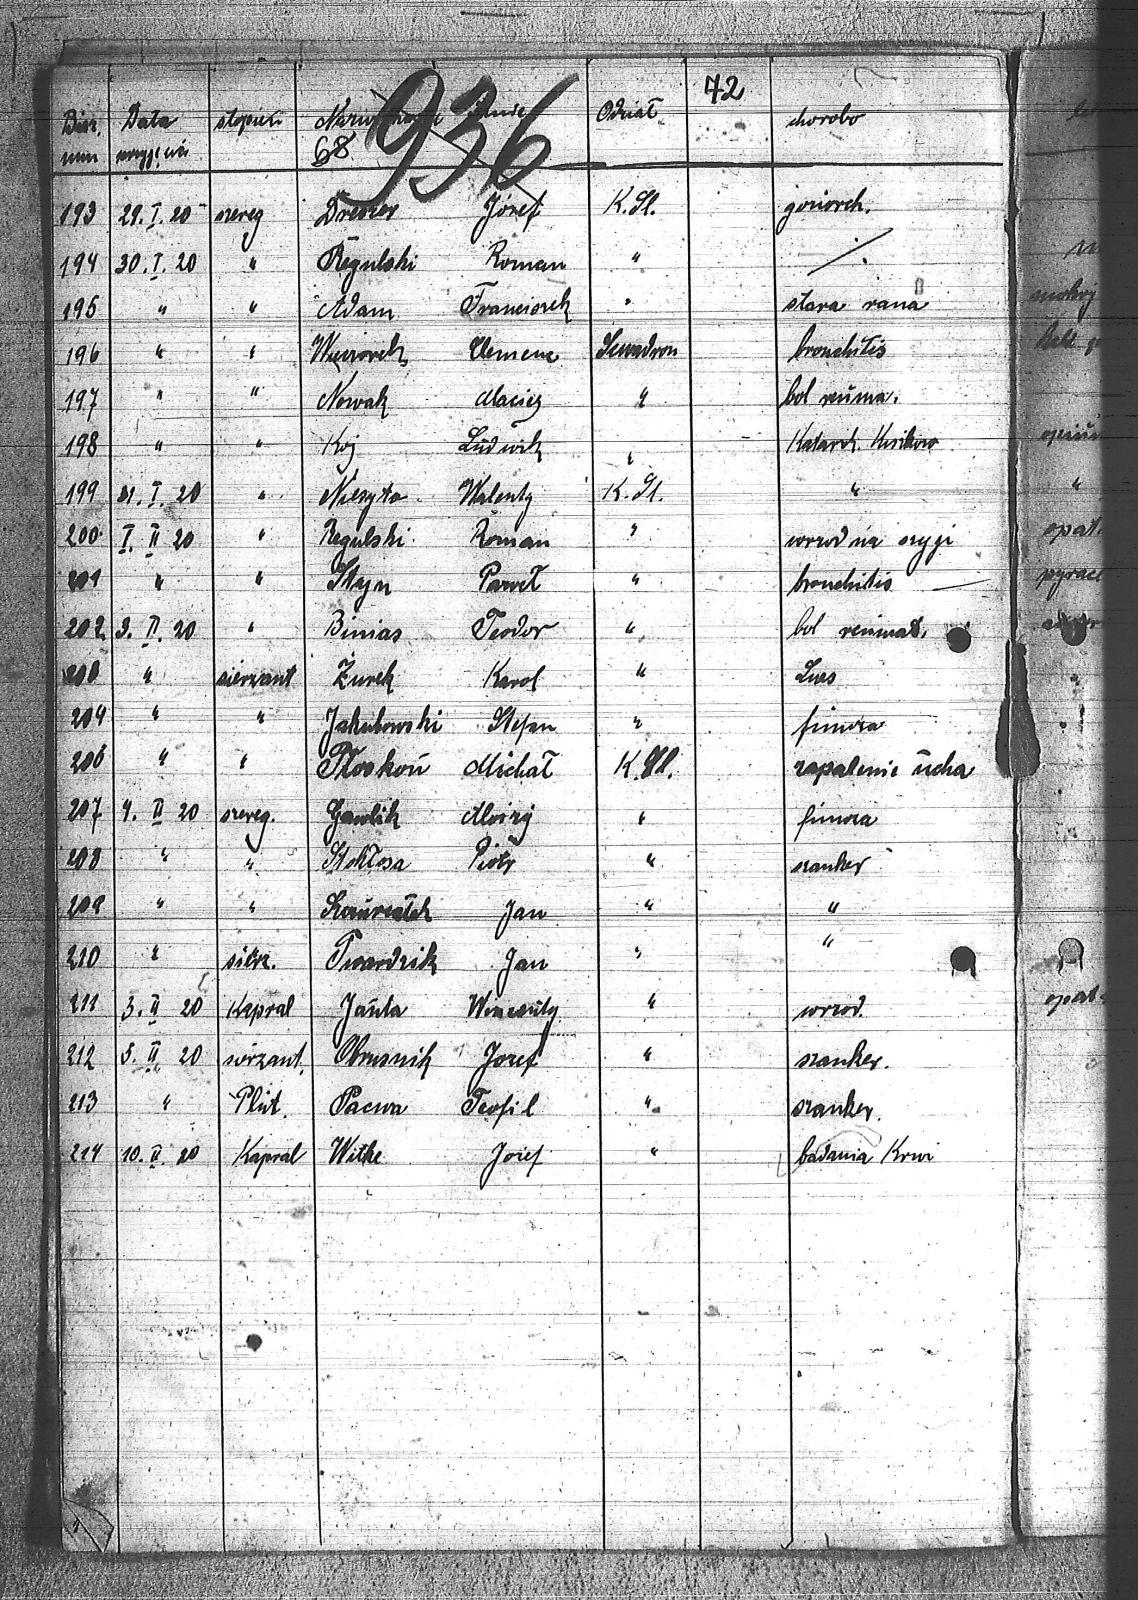 72
936
Data stopień Imie Odział choroba
68
193 29. I. 20 szereg Drewer Józef K. Sł. gonorch.
194 30. I. 20 " Regulski Roman " /.
195 " " Adam Franciszek " stara rana
196 " " Clemens Scwadron bronchitis
197 " " Nowak Maciej " bol reuma.
198 " " Koj Ludwik " Katarch.
199 31. I. 20 " Walenty K. Sł. "
200 I. II 20 " Regulski Roman " wrzod na szyji
201 " " Paweł " bronchitis
202 3. II. 20 " Binias Teodor " bol reumat.
" sierzant Żurek Karol " Lues
204 " " Jakubowski Stefan " fimoza
206 " " Płoskoń Michał K. Sł. zapalenie ucha
207 4. II 20 szereg. Gawlik Alojzy " fimoza
208 " " Stokłosa Piotr " szanker
209 " " Jan " "
210 " sierz. Twardzik Jan " "
211 3. II 20 Kapral Janta Wincenty " wrzod.
212 5. II 20 sierzant. Obrusnik Jozef " szanker.
213 " Plut. Pacwa Teofil " szanker.
214 10. II. 20 Kapral Witke Jozef " badania Krwi